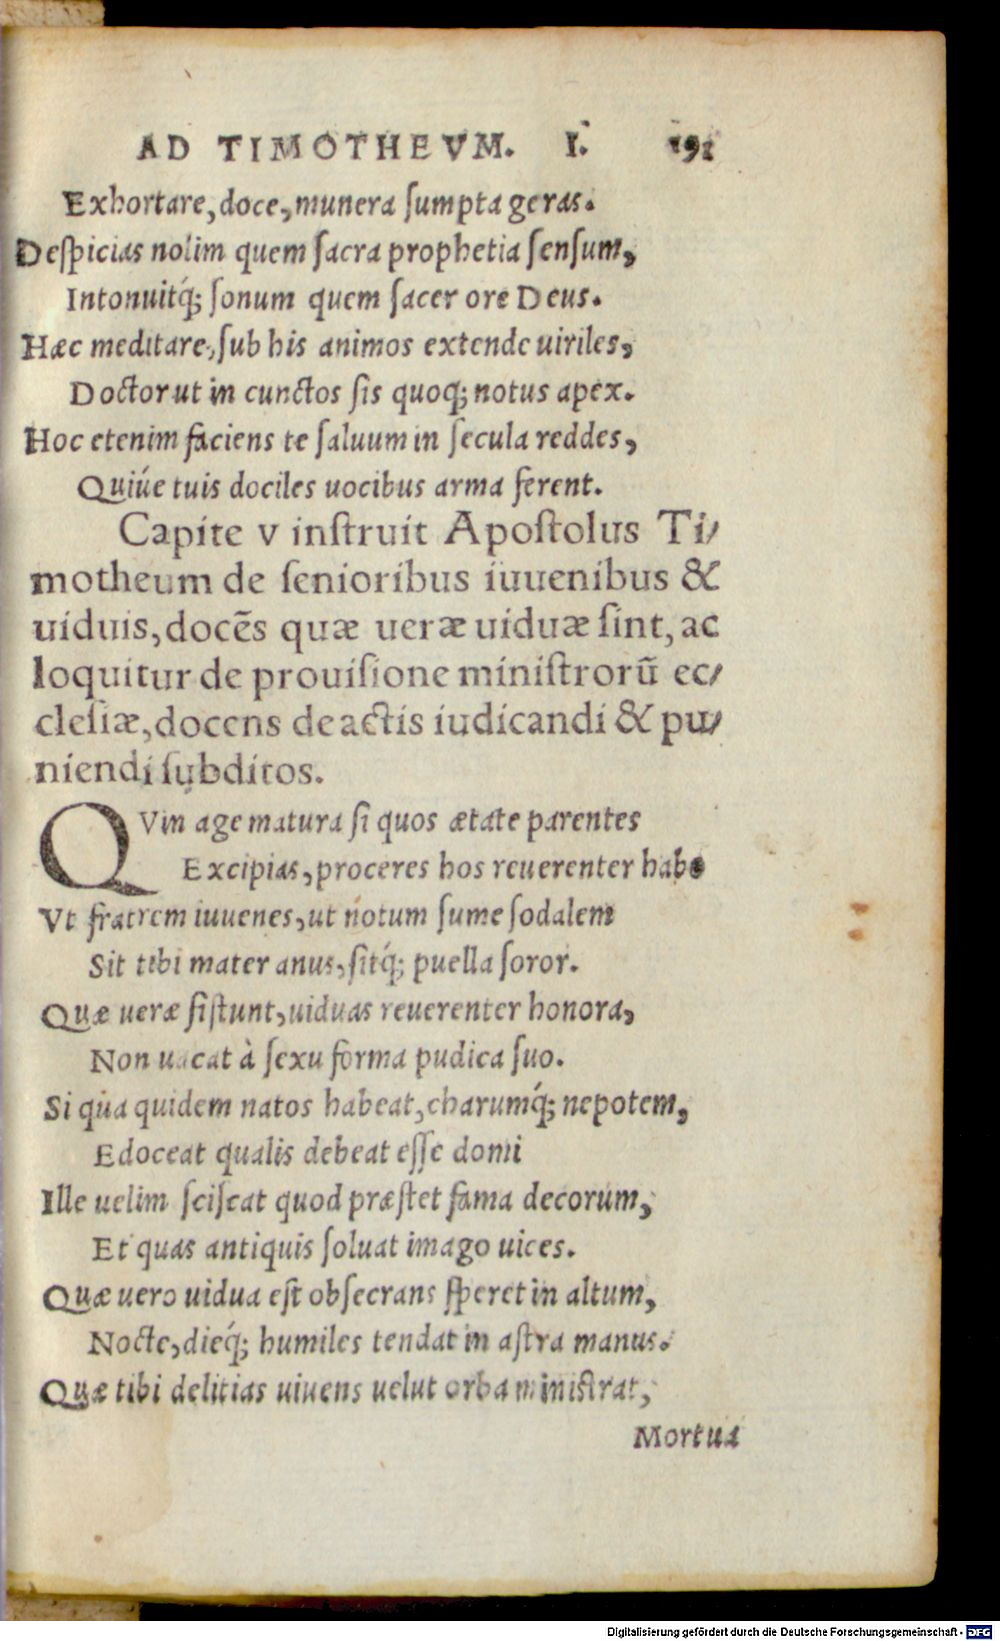 AD TIMOTHEVM. I. 191
Exhortare, doce, munera ſumpta geras.
Deſpicias nolim quem ſacra prophetia ſenſum,
Intonuitq́; ſonum quem ſacer ore Deus.
Hæc meditare, ſub his animos extende uiriles,
Doctor ut in cunctos ſis quoq; notus apex.
Hoc etenim faciens te ſaluum in ſecula reddes,
Quiúe tuis dociles uocibus arma ferent.
Capite v inſtruit Apoſtolus Ti/
motheum de ſenioribus iuuenibus &
uiduis, docēs quæ ueræ uiduæ ſint, ac
loquitur de prouiſione miniſtrorū ec/
cleſiæ, docens de actis iudicandi & pu/
niendi ſubditos.
QVin age matura ſi quos ætate parentes
Excipias, proceres hos reuerenter habe
Vt fratrem iuuenes, ut notum ſume ſodalem
Sit tibi mater anus, ſitq́; puella ſoror.
Quæ ueræ ſiſtunt, uiduas reuerenter honora,
Non uacat à ſexu forma pudica ſuo.
Si qua quidem natos habeat, charumq́; nepotem,
Edoceat qualis debeat eſſe domi
Ille uelim ſciſcat quod præſtet fama decorum,
Et quas antiquis ſoluat imago uices.
Quæ uero uidua eſt obſecrans ſperet in altum,
Nocte, dieq́; humiles tendat in aſtra manus.
Quæ tibi delitias uiuens uelut orba miniſtrat,
Mortua
Digitalisierung gefördert durch die Deutsche Forschungsgemeinschaft - DFG